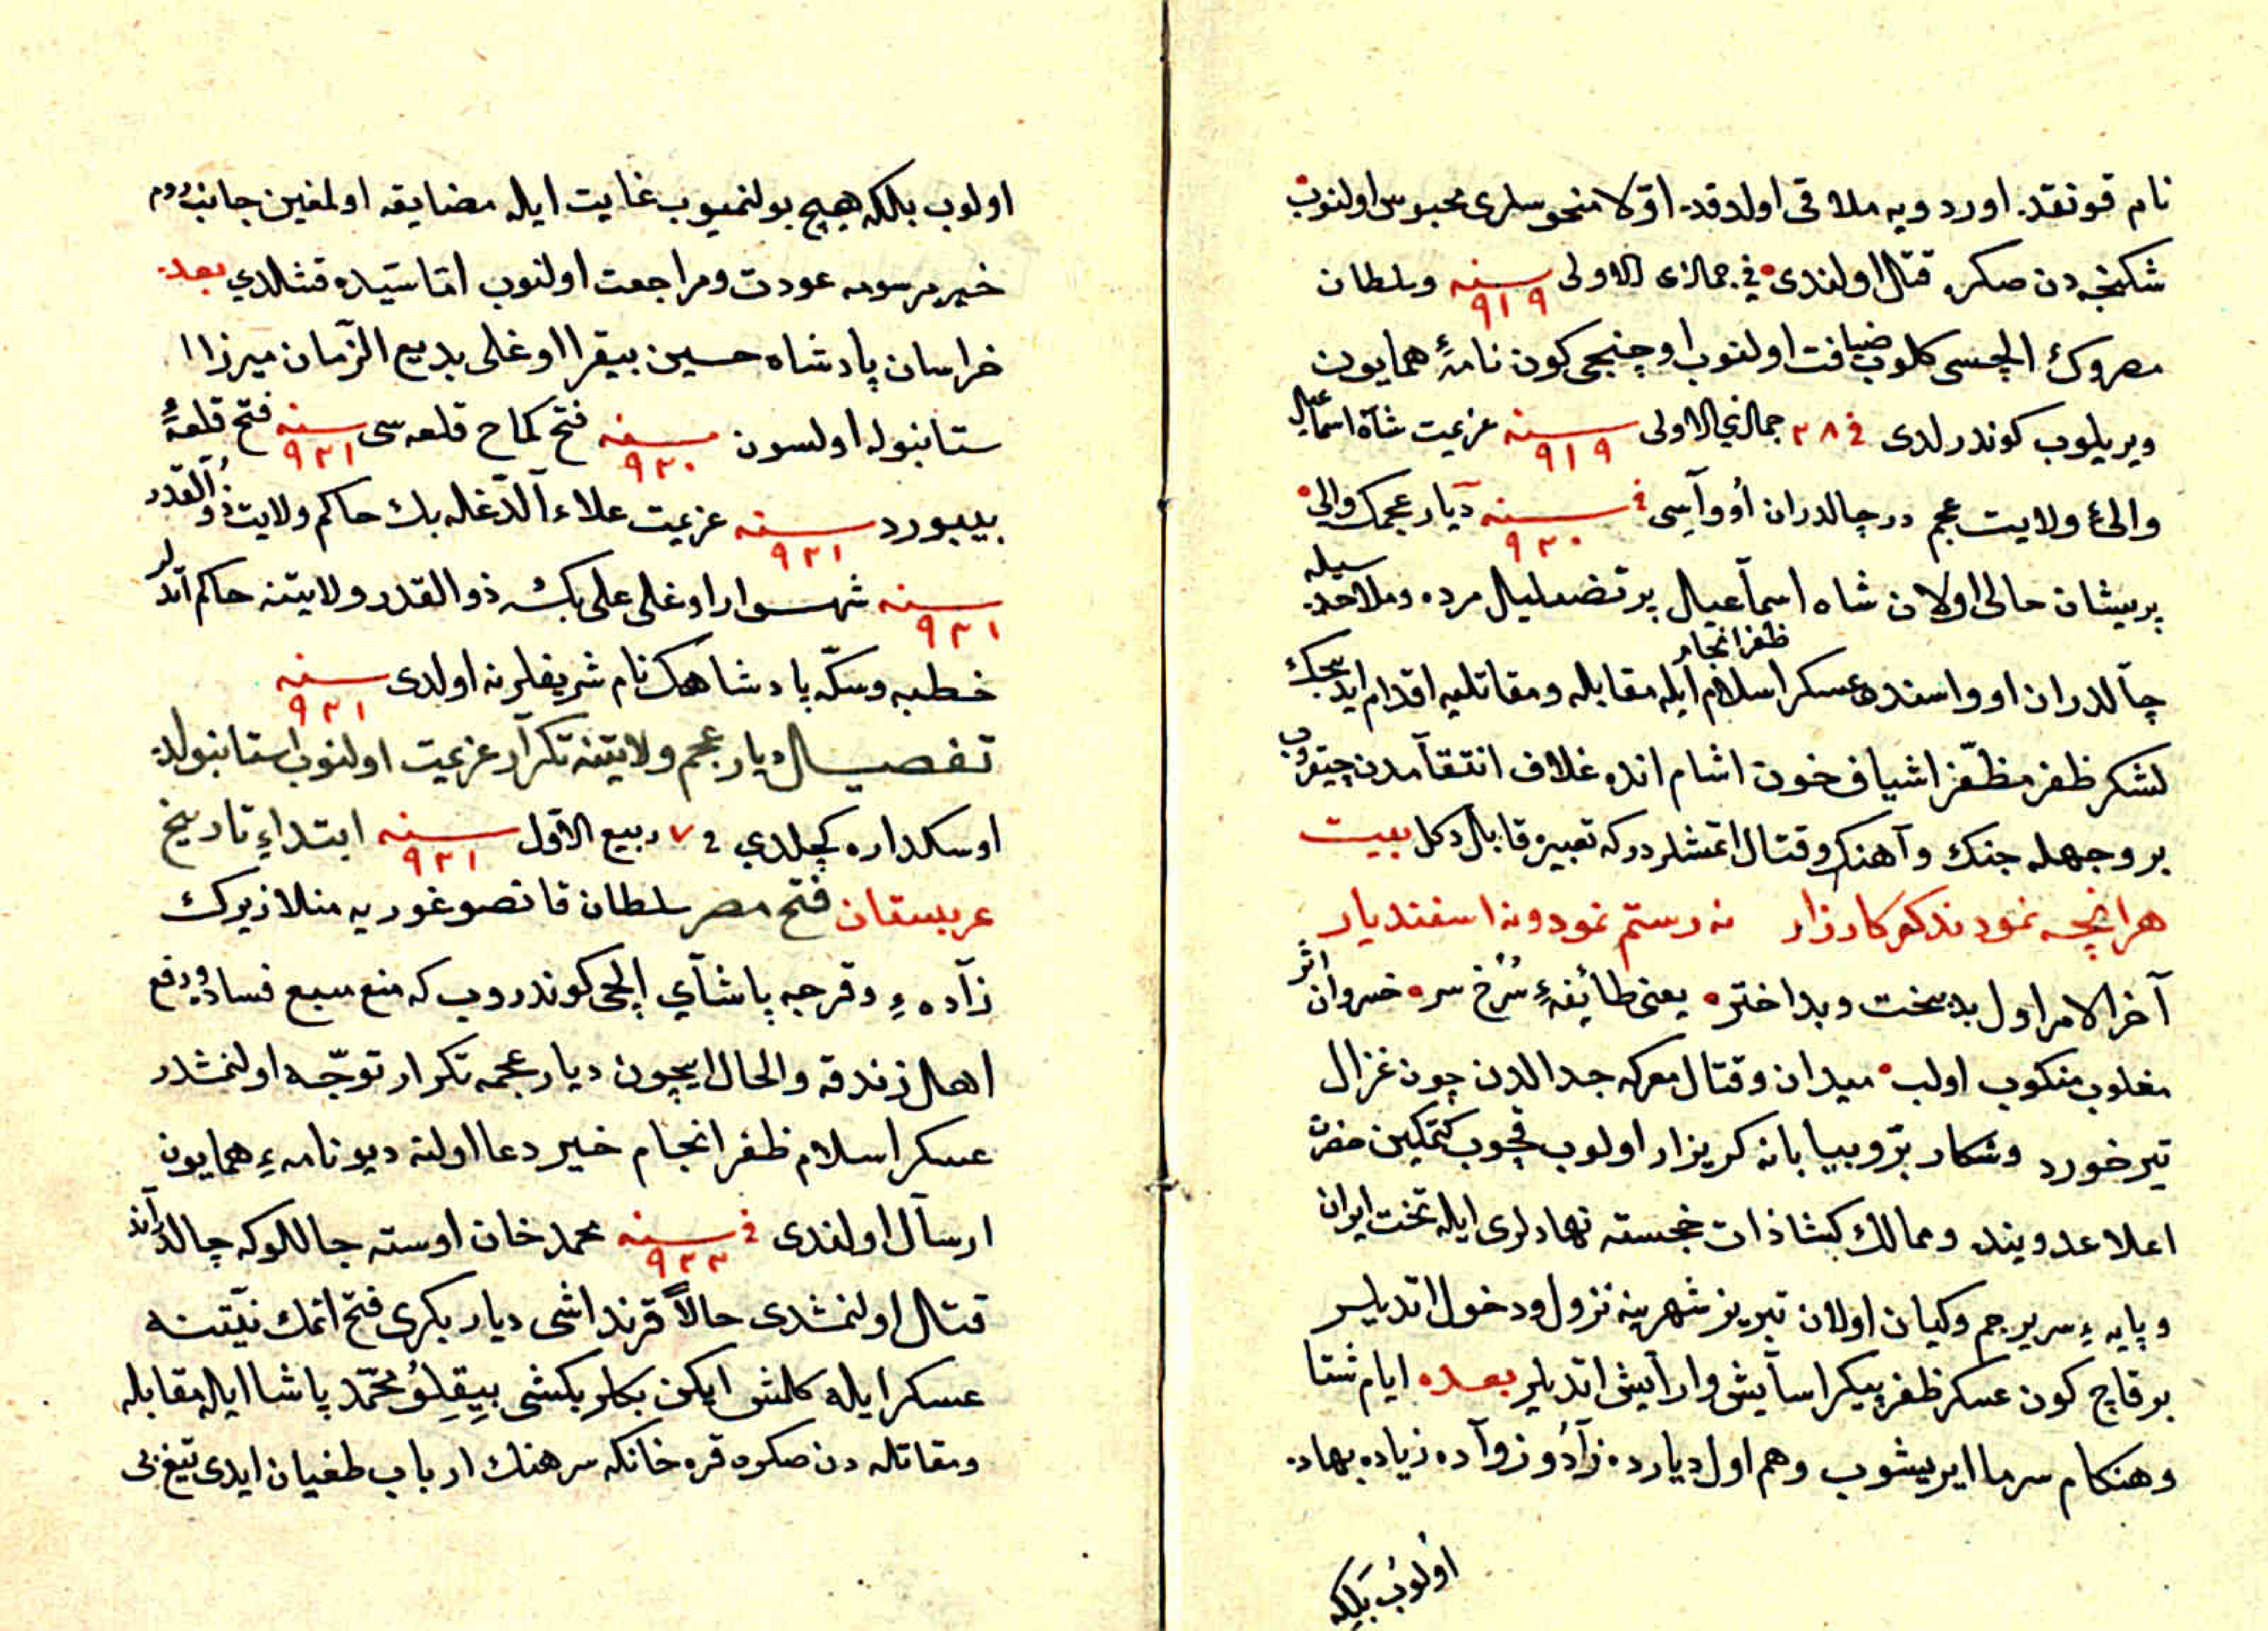 نام قونقده اوردویه ملاقی اولدقده اوّلا منحوسلری محبوس اولنوب
شکنجه دن صکره قتال اولندی في جمازی الاولی سنه ٩١٩ وسلطان
مصروک ایلچسی کلوب ضیافت اولنوب اوچنجی کون نامهٔ همایون
ویریلوب کوندرلدی في ٢٨ جمازی الاولی سنه ٩١٩ عزیمت شاه اسماعیل
والیٔ ولایت عجم در چالدران اُوواسی في سنه ٩٢٠ دیار عجمک والی
پریشان حالی اولان شاه اسماعیال پر تضلیال مرده وملاحده سیله
چالدران اوواسنده عسکر اسلام ظفر انجام ایله مقابله ومقاتلیه اقدام ایدیجک
لشکر ظفر مظفّر اشیاف خون اشام انده غلاف انتقامدن چیقروب
بر وجهله جنک وآهنک وقتال اتمشلردر که تعبیره قابال دکل بیت
هرانچه نمودند کر کارزار نه رستم نمود ونه اسفندیار
آخر الامر اول بدبخت وبداختر یعنی طائفهٔ سُرخ سره خسروان اثر
مغلوب منکوب اولب میدان وقتال معرکه جدالدن چون غزال
تیر خورد وشکار برّ وبیابانه کریزار اولوب قچوب کتمکین حضرت
اعلا عدوینده وممالک کشا ذات خجسته نهادلری ایله تخت ایران
وپایهٔ سریر جم وکیان اولان تبریز شهرینه نزول ودخول اتدیلر
بر قاچ کون عسکر ظفر پیکر اسایش وارایش اتدیلر بعده ایام شتا
وهنکام سرما ایریشوب وهم اول دیارده زاد وزواده زیاده بهاده
اولوب بلکه
اولوب بلکه هیچ بولنمیوب غایت ایله مضایقه اولمغین جانب روم
خیر مرسومه عودت ومراجعت اولنوب اماسیده قشلادي بعده
خراسان پادشاه حسین بیقرا اوغلی بدیع الزمان میرزا
ستانبوله اولسون سنه ٩٢٠ فتح کماح قلعه سی سنه ٩٢١ فتح قلعهٔ
بیبورد سنه ٩٢١ عزیمت علاء الدغله بك حاکم ولایت ذو القدر
سنه ٩٢١ شهسوار اوغلی علی بك ذو القدر ولایتنه حاکم اتدلر
خطبه وسکّه پادشاهك نام شریفلرنه اولدی سنه ٩٢١
تفصیال دیار عجم ولایتنه تکرار عزیمت اولنوب استانبولده
اوسکداره کچلدي في ٧ ربیع الاول سنه ٩٢١ ابتداءِ تاریخ
عربستان فتح مصر سلطان قانصو غوریه منلا زیرك
زاده ءِ وقرجه پاشاي ایلچی کوندروب که منع سبع فساد ودفع
اهل زندقه والحال ایچون دیار عجمه تکرار توجّه اولنمشدر
عسکر اسلام ظفر انجام خیر دعا اولنه دیو نامه ءِ همایون
ارسال اولندی في سنه ٩٢٢ محمد خان اوسته جاللوکه چالدرانده
قتال اولنمشدی حالاً قرنداشی دیار بکری فتح اتمك نیّتنه
عسکر ایله کلمش ایکن بکلر بکشی بِیِقِلُو محمّد پاشا ایله مقابله
ومقاتله دن صکره قره خانکه سرهنك ارباب طغیان ایدی تیغ بی